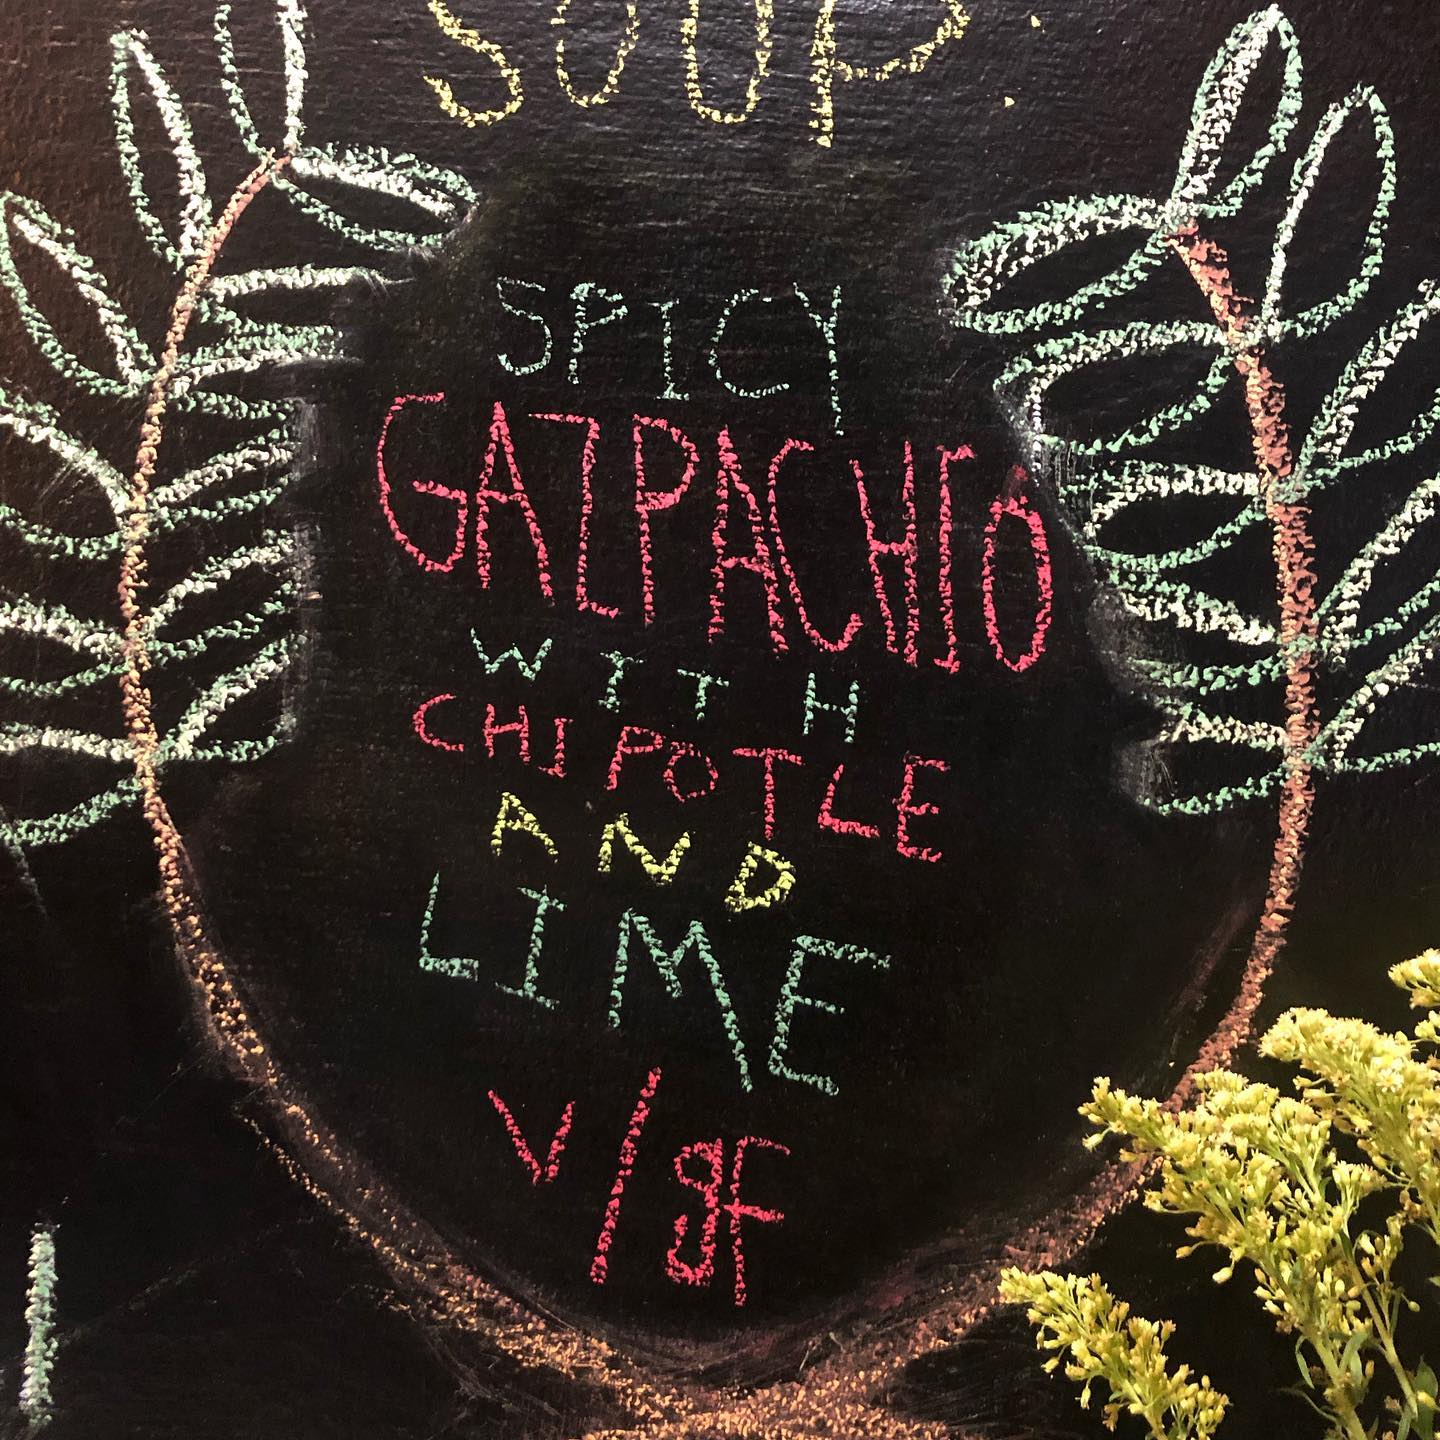 SOUP:
SPICY
GAZPACHIO
WITH
CHIPOTLE
AND
LIME
V/gF